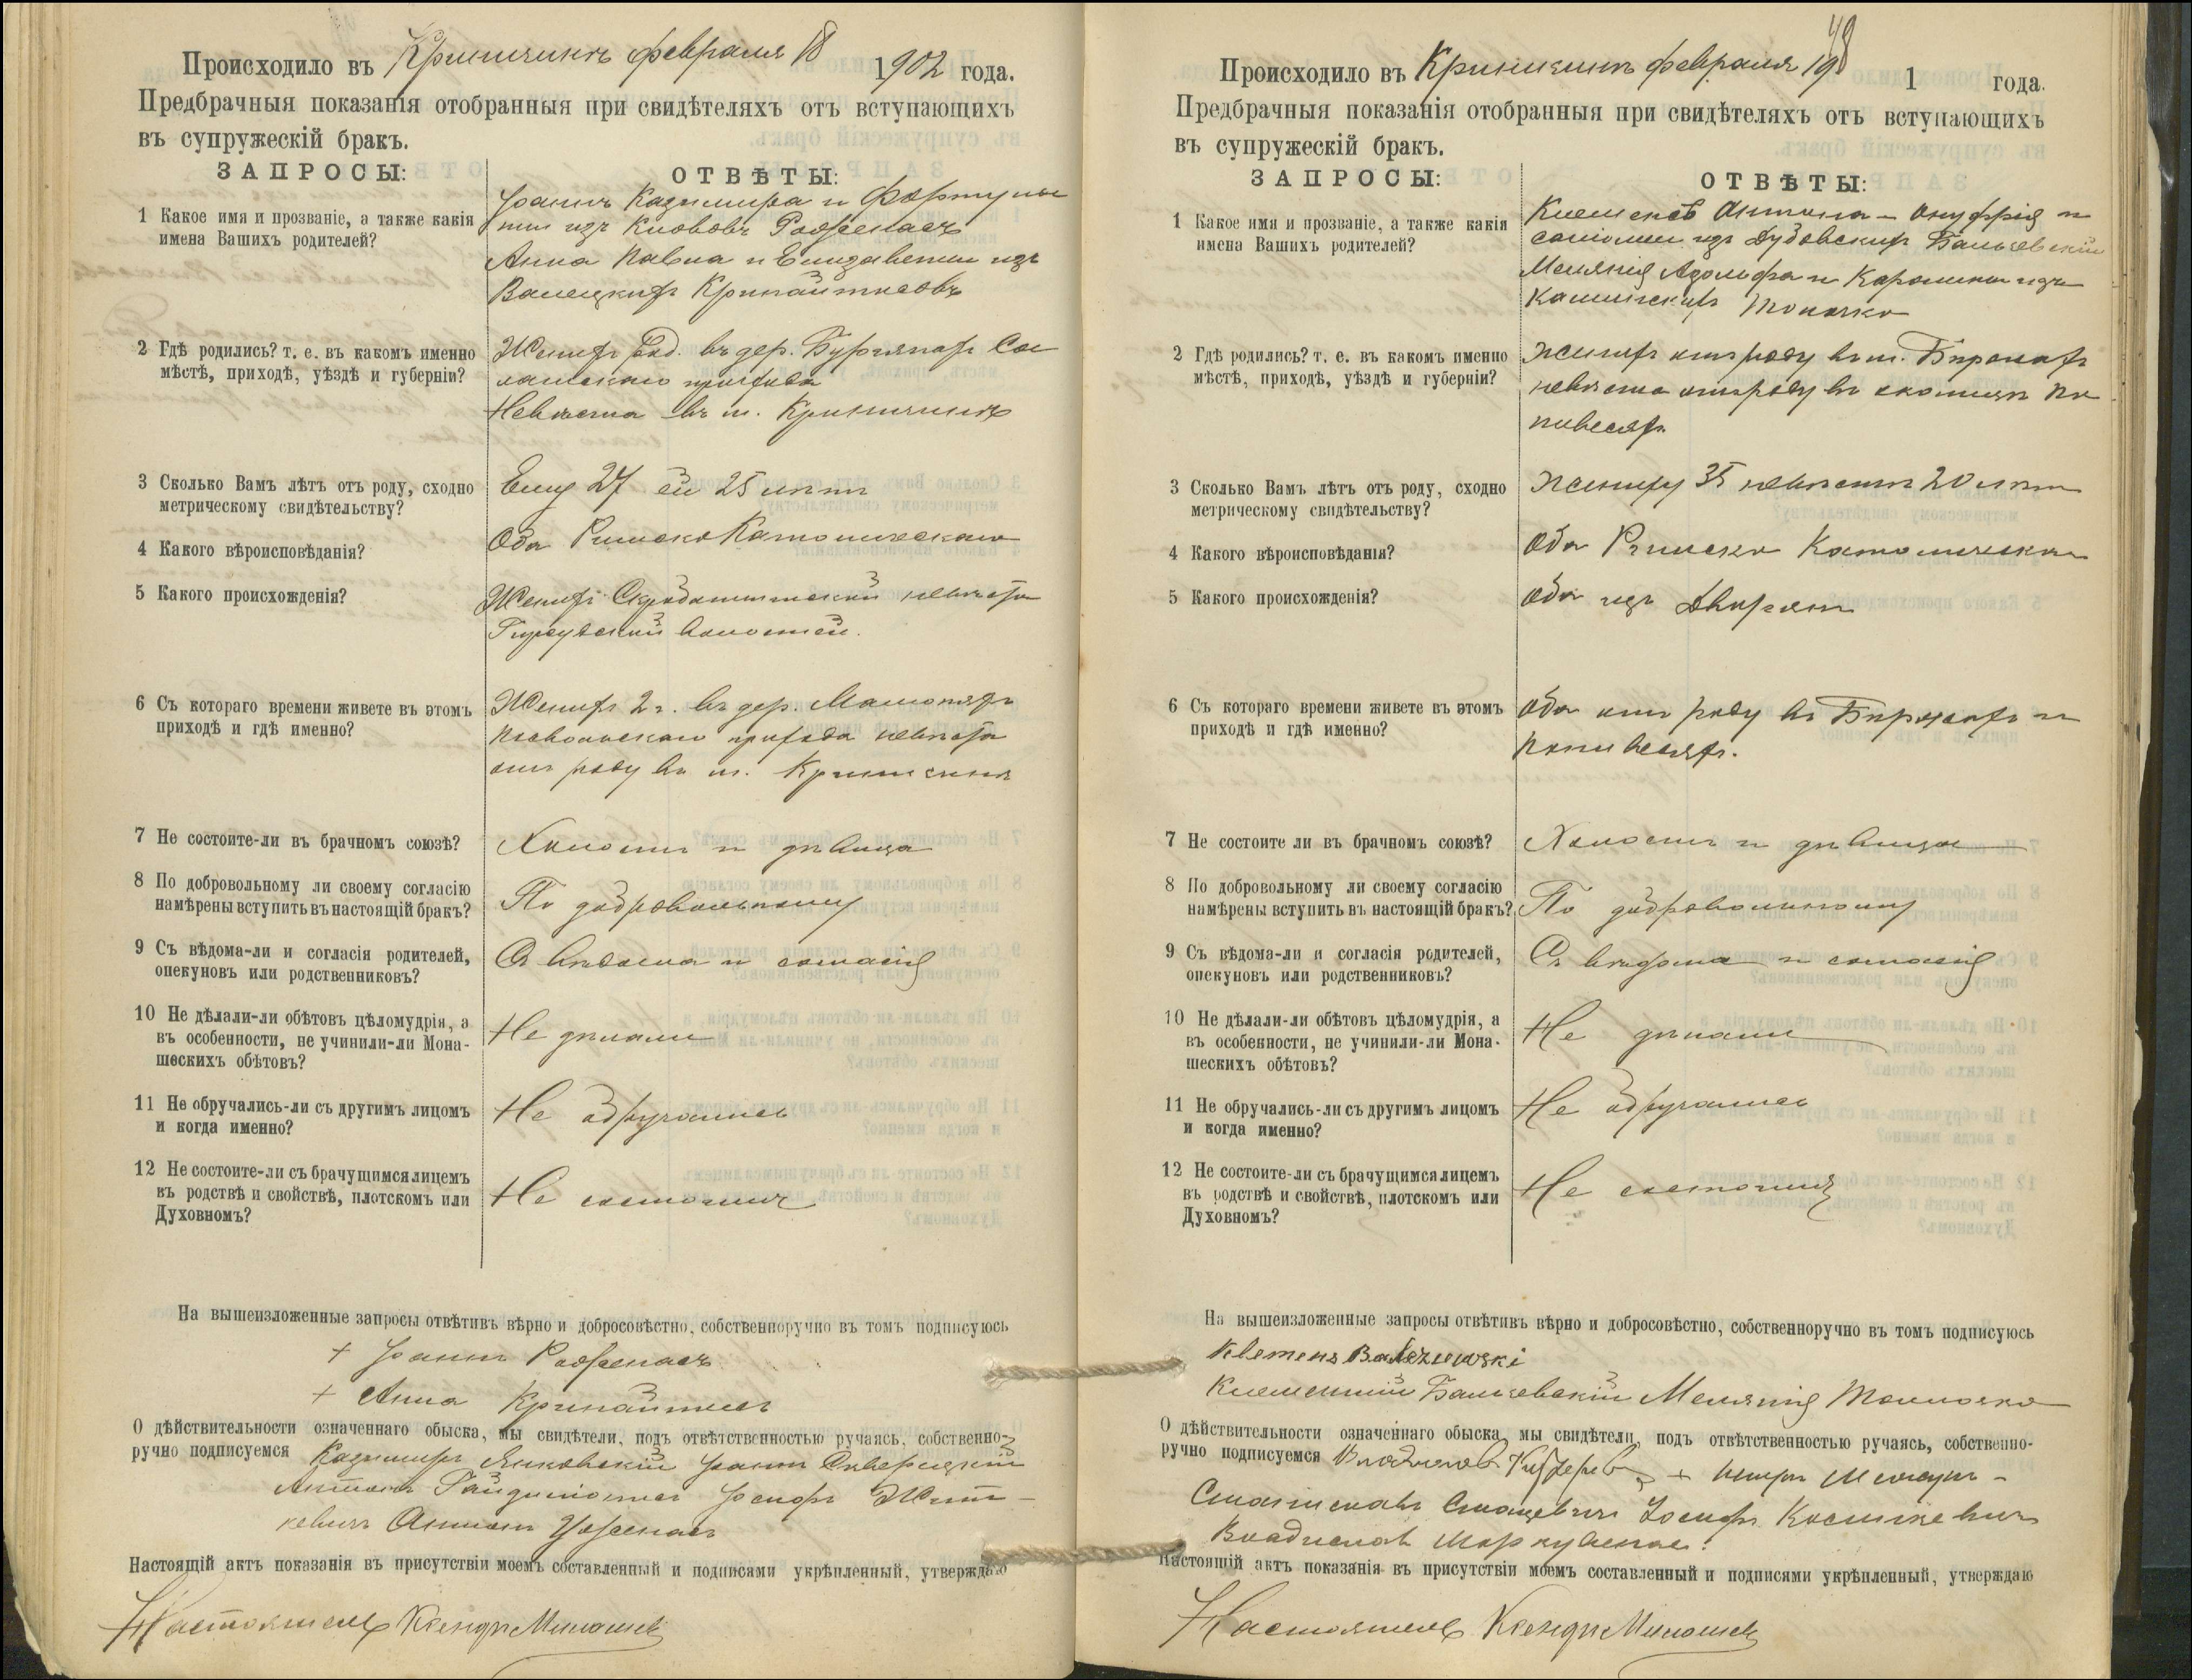 Происходило въ Кринчинъ февраля 18 1902 года.
Предбрачныя показанія отобранныя при свидѣтеляхъ отъ вступающихъ
въ супружескій бракъ.
ЗАПРОСЫ:
ОТВѢТЫ:
1 Какое имя и прозваніе, а также какія
имена Вашихъ родителей?
Іоаннъ Казимира и Фортуна
ты изъ
Анна Павла и Елизаветы изъ
Валецкихъ
2 Гдѣ родились? т. е. въ какомъ именно
мѣстѣ, приходѣ, уѣздѣ и губерніи?
Женихъ въ дер.
прихода
Невѣста въ м. Кринчинъ
3 Сколько Вамъ лѣтъ отъ роду, сходно
метрическому свидѣтельству?
Ему 27 ей 25 лѣтъ
4 Какого вѣроисповѣданія?
Оба Римско Католическаго
5 Какого происхожденія?
Женихъ невѣста
волостей.
6 Съ котораго времени живете въ этомъ
приходѣ и гдѣ именно?
Женихъ 2 г. въ дер.
прихода невѣста
отъ роду въ м.
7 Не состоите-ли въ брачномъ союзѣ?
Холостъ и дѣвица
8 По добровольному ли своему согласію
намѣрены вступить въ настоящій бракъ?
По добровольному
9 Съ вѣдома-ли и согласія родителей,
опекуновъ или родственниковъ?
Съ вѣдома и согласія
10 Не дѣлали-ли обѣтовъ цѣломудрія, а
въ особенности, не учинили-ли Мона-
шескихъ обѣтовъ?
Не дѣлали
11 Не обручались-ли съ другимъ лицомъ
и когда именно?
Не обручались
12 Не состоите-ли съ брачущимся лицемъ
въ родствѣ и свойствѣ, плотскомъ или
Духовномъ?
Не состоимъ
На вышеизложенные запросы отвѣтивъ вѣрно и добросовѣстно, собственноручно въ томъ подписуюсь
+ Іоаннъ
+ Анна
О дѣйствительности означеннаго обыска, мы свидѣтели, подъ отвѣтственностью ручаясь, собственно-
ручно подписуемся Казимиръ Янковскій Іоаннъ
Антонъ Іосифъ Жит-
кевичъ Антонъ
Настоящій актъ показанія въ присутствіи моемъ составленный и подписями укрѣпленный, утверждаю
Настоятель Ксендзъ
Происходило въ февраля 1 года.
Предбрачныя показанія отобранныя при свидѣтеляхъ отъ вступающихъ
въ супружескій бракъ.
ЗАПРОСЫ:
ОТВѢТЫ:
1 Какое имя и прозваніе, а также какія
имена Вашихъ родителей?
Антона Онуфрія и
изъ Дубовскихъ Бальчевскій
Меланія Адольфа и Каролины изъ
2 Гдѣ родились? т. е. въ какомъ именно
мѣстѣ, приходѣ, уѣздѣ и губерніи?
женихъ отъ роду въ м. Биржахъ
невѣста отъ роду въ околицѣ По
нивесяхъ
3 Сколько Вамъ лѣтъ отъ роду, сходно
метрическому свидѣтельству?
жениху 35 невѣстѣ 20 лѣтъ
4 Какого вѣроисповѣданія?
Оба Римско Католическаго
5 Какого происхожденія?
Оба изъ Дворянъ
6 Съ котораго времени живете въ этомъ
приходѣ и гдѣ именно?
Оба отъ роду въ Биржахъ и
Понивесяхъ.
7 Не состоите ли въ брачномъ союзѣ?
Холостъ и дѣвица
8 По добровольному ли своему согласію
намѣрены вступить въ настоящій бракъ?
По добровольному
9 Съ вѣдома-ли и согласія родителей,
опекуновъ или родственниковъ?
Съ вѣдома и согласія
10 Не дѣлали-ли обѣтовъ цѣломудрія, а
въ особенности, не учинили-ли Мона-
шескихъ обѣтовъ?
Не дѣлали
11 Не обручались-ли съ другимъ лицомъ
и когда именно?
Не обручались
12 Не состоите-ли съ брачущимся лицемъ
въ родствѣ и свойствѣ, плотскомъ или
Духовномъ?
Не состоимъ
На вышеизложенные запросы отвѣтивъ вѣрно и добросовѣстно, собственноручно въ томъ подписуюсь
Klemens
Бальчевскій Меланія
О дѣйствительности означеннаго обыска, мы свидѣтели, подъ отвѣтственностью ручаясь, собственно-
ручно подписуемся
Станиславъ Іосифъ
Владиславъ
Настоящій актъ показанія въ присутствіи моемъ составленный и подписями укрѣпленный, утверждаю
Настоятель Ксендзъ